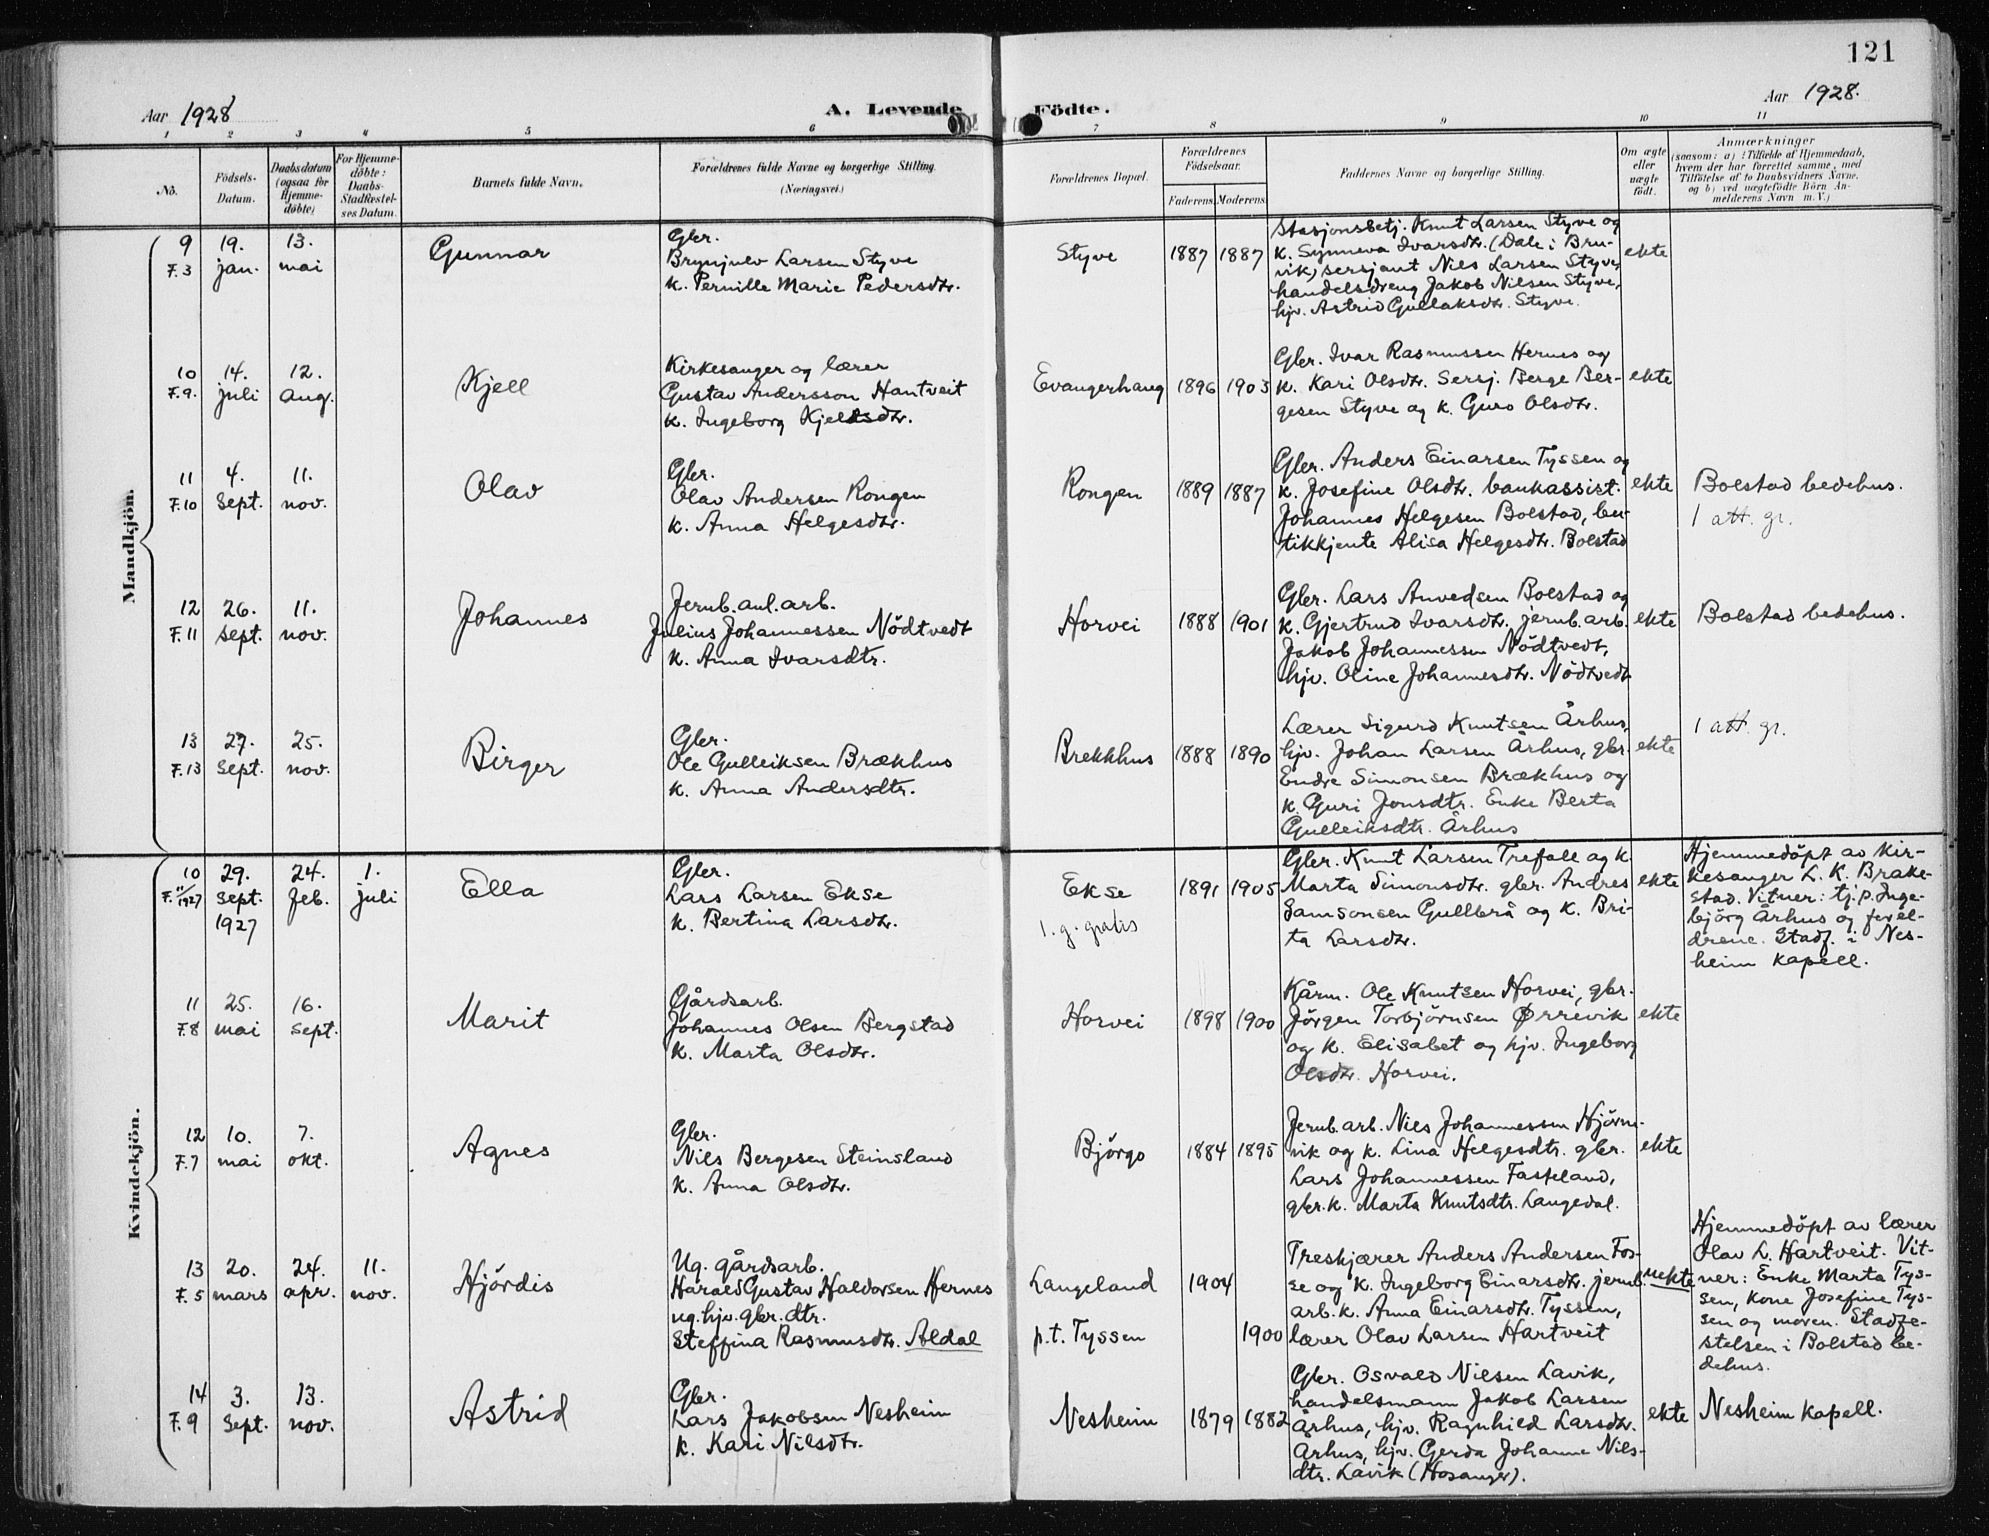 121
Aar 1928
A. Levende
Födte.
Aar 1928.
1 2 3 4 5 6 7 8 9 10 11
No.
Födsels-
Datum.
Daabsdatum
(ogsaa for
Hjemme-
døbte)
For Hjemme-
døbte:
Daabs-
Stadfestel-
ses Datum.
Barnets fulde Navn.
Forældrenes fulde Navne og borgerlige Stilling.
(Næringsvei.)
Forældrenes Bopæl.
Forældrenes
Födselsaar.
Faderens. Moderens.
Faddernes Navne og borgerlige Stilling.
Om ægte
eller
uægte
født.
Anmærkninger
(saasom: a) i Tilfælde af Hjemmedaab,
hvem der har forrettet samme, med
Tilföielse af to Daabsvidners Navne,
og b) ved uægtefödte Börn An-
melderens Navn m. V.)
Mandkjön.
9
F.3
19.
jan.
13.
mai
Gunnar
Gbr.
Brynjulv Larsen Styve
k. Pernille Marie Pedersdtr.
Styve
1887 1887
Stasjonsbetj. Knut Larsen Styve og
k. Synneva Ivarsdtr. (Dale i Bru-
vik) sersjant Nils Larsen Styve,
handelsdreng Jakob Nilsen Styve,
hjv. Astrid Gullaksdtr. Styve.
ekte
10
F.9.
14.
juli
12.
aug.
Kjell
Kirkesanger og lærer
Gustav Andersson Hantveit
k. Ingeborg Kjelsdtr.
Evangerhaug
1896 1903
Gbr. Ivar Rasmussen Hernes og
k. Kari Olsdtr. Sersj. Berge Ber-
gesen Styve og k. Guro Olsdtr.
ekte
11
F.10
4.
Sept.
11.
nov.
Olav
Gbr.
Olav Andersen Rongen
k. Anna Helgesdtr.
Rongen
1889 1887
Gbr. Anders Einarsen Tyssen og
k. Josefine Olsdtr. bankassist.
Johannes Helgesen Bolstad, bu-
tikkjente Alisa Helgesdtr. Bolstad
ekte
Bolstad bedehus.
1 att. gr.
12
F.11
26.
Sept.
11.
nov.
Johannes
Jernb.anl.arb.
Julius Johannessen Nödtvedt
k. Anna Ivarsdtr.
Horvei
1888 1901
Gbr. Lars Anvedsen Bolstad og
k. Gjertrud Ivarsdtr. jernb.arb.
Jakob Johannessen Nödtvedt,
hjv. Oline Johannesdtr. Nödtvedt
ekte
Bolstad bedehus.
13
F.13
27.
Sept.
25.
nov.
Birger
Gbr.
Ole Gulleiksen Brækhus
k. Anna Andersdtr.
Brekkhus
1888 1890
Lærer Sigurd Knutsen Århus,
hjv. Johan Larsen Århus, gbr.
Endre Simonsen Brækhus og
k. Guri Jonsdtr. Enke Berta
Gulleiksdtr. Århus
ekte
1 att. gr.
Kvindekjön.
10
F. 11/1927
29.
Sept.
1927
24.
feb.
1.
juli
Ella
Gbr.
Lars Larsen Ekse
k. Bertina Larsdtr.
Ekse
1. g. gratis
1891 1905
Gbr. Knut Larsen Trefall og k.
Marta Simonsdtr. gbr. Andres
Samsonsen Gullbrå og k. Bri-
ta Larsdtr.
ekte
Hjemmedöpt av kir-
kesanger L. K. Brake-
stad. Vitner: tj.p. Inge-
björg Århus og forel-
drene. Stadf. i Nes-
heim kapell.
11
F.8
25.
mai
16.
Sept.
Marit
Gårdsarb.
Johannes Olsen Bergstad
k. Marta Olsdtr.
Horvei
1898 1900
Kårm. Ole Knutsen Horvei, gbr.
Jörgen Torbjörnsen Ørrevik
og k. Elisabet og hjv. Ingeborg
Olsdtr. Horvei.
ekte
12
F.7
10.
mai
7.
okt.
Agnes
Gbr.
Nils Bergesen Steinsland
k. Anna Olsdtr.
Björgo
1884 1895
Jernb.arb. Nils Johannessen Hjörne-
vik og k. Lina Helgesdtr. gbr.
Lars Johannessen Fasteland,
gbr.k. Marta Knutsdtr. Langedal.
ekte
13
F.5
20.
mars
24.
apr.
11.
nov.
Hjördis
Ug. gårdsarb.
Harald Gustav Haldorsen Hernes
ug.hjv.gbr.dtr.
Steffina Rasmusdtr. Aldal
Langeland
p.t. Tyssen
1904
1900
Treskjærer Anders Andersen Fos-
se og k. Ingeborg Einarsdtr. jernb.
arb.k. Anna Einarsdtr. Tyssen,
lærer Olav Larsen Hartveit
uekte
Hjemmedöpt av lærer
Olav L. Hartveit. Vit-
ner: Enke Marta Tys-
sen, kone Josefine Tys-
sen og moren. Stadfe-
stelsen i Bolstad be-
dehus.
14
F.9
3.
Sept.
13.
nov.
Astrid
Gbr.
Lars Jakobsen Nesheim
k. Kari Nilsdtr.
Nesheim
1879 1882
Gbr. Osvald Nilsen Lavik,
handelsmann Jakob Larsen
Århus, hjv. Ragnhild Larsdtr.
Århus, hjv. Gerda Johanne Nils-
dtr. Lavik (Hosanger).
ekte
Nesheim kapell.